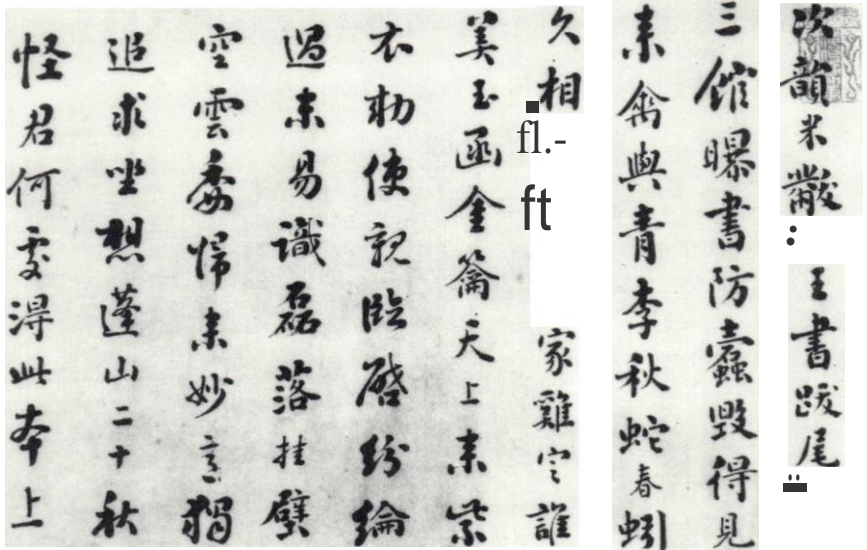 次韻米黻:王書跋尾
三館曝書防蠹毀得見
来禽與青李秋蛇春蚓
久相fl.-ft家雞定誰
美玉函金籥天上来紫
衣勑使親臨啓紛綸
過未易識磊落挂壁
空雲委歸来妙言獨
追求坐想蓬山二十秋
怪君何處得此本上